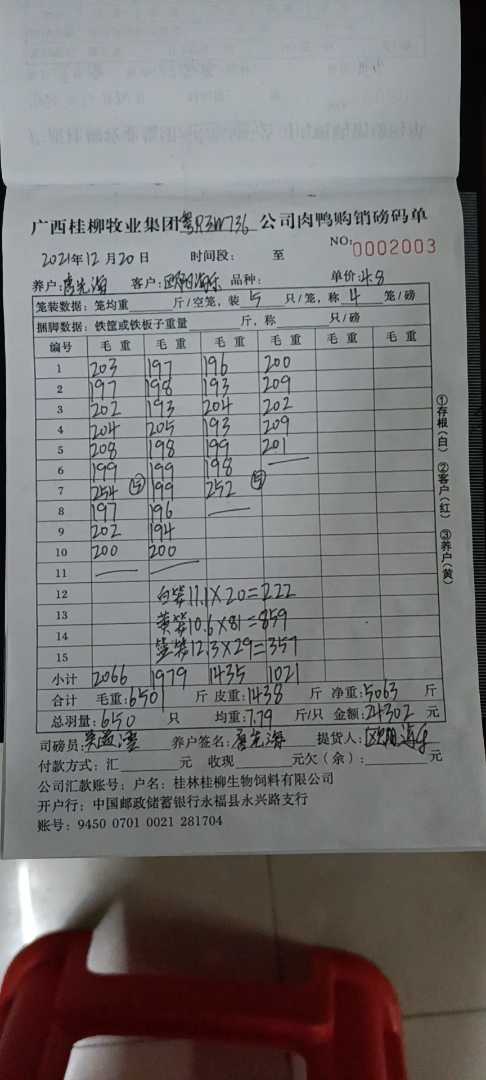 广西桂柳牧业集团粤R3W736公司肉鸭购销磅码单
2021年12月20日 时间段： 至 NO：0002003
养户： 客户：欧阳海乐 品种： 单价：4.8
笼装数据：笼均重 斤/空笼，装 5 只/笼，称 4 笼/磅
捆脚数据：铁筐或铁板子重量 斤，称 只/磅
编号 毛重 毛重 毛重 毛重 毛重 毛重
1 203 197 196 200
2 197 198 193 209
3 202 193 204 202
4 204 205 193 209
5 208 198 199 201
6 199 199 198 —
7 254 ⑤ 199 252 ⑤
8 197 196 —
9 202 194
10 200 200
11 — —
12 白笼11.1×20=222
13 黄笼10.6×81=859
14 蓝笼12.3×29=357
15
小计 2066 1979 1435 1021
合计 毛重：6501 斤 皮重：1438 斤 净重：5063 斤
总羽量：650 只 均重：7.79 斤/只 金额：24302 元
司磅员： 养户签名： 提货人：欧阳海乐
付款方式：汇 元 收现 元欠（余）： 元
公司汇款账号：户名：桂林桂柳生物饲料有限公司
开户行：中国邮政储蓄银行永福县永兴路支行
账号：9450 0701 0021 281704
①存根（白） ②客户（红） ③养户（黄）